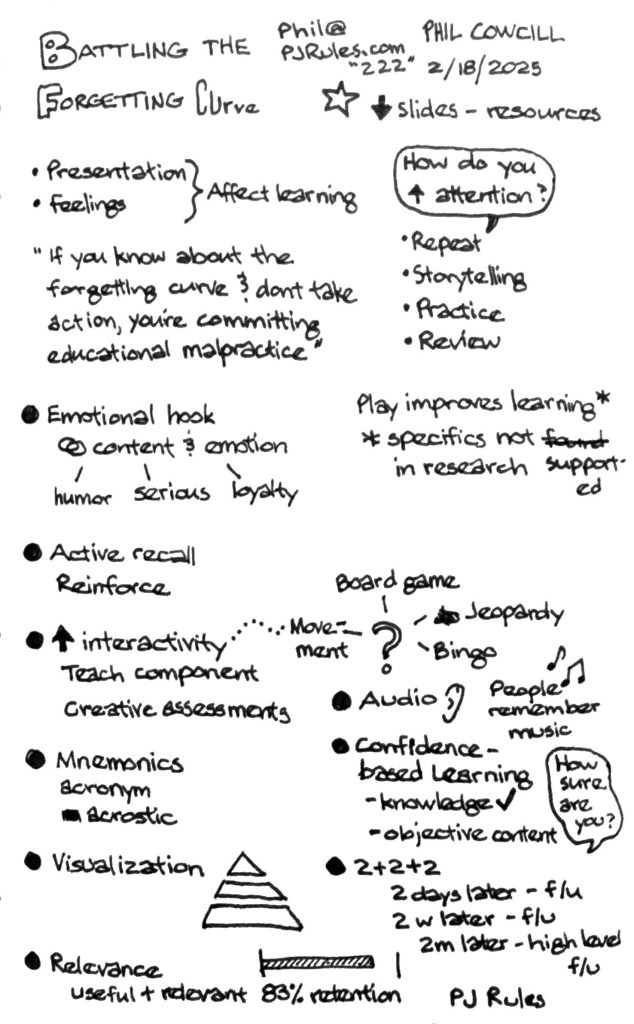 BATTLING THE
FORGETTING CURVE
Phil@
PJRules.com
"222"
PHIL COWCILL
2/18/2025
slides - resources
• Presentation
• Feelings
Affect learning
"If you know about the
forgetting curve & dont take
action, you're committing
educational malpractice"
How do you
↑ attention?
• Repeat
• Storytelling
• Practice
• Review
Play improves learning*
* specifics not found
in research supported
Emotional hook
content & emotion
humor serious loyalty
Active recall
Reinforce
↑ interactivity
Teach component
Creative assessments
Movement
?
Board game
Jeopardy
Bingo
Mnemonics
acronym
acrostic
Audio
People
remember
music
Confidence-
based Learning
- knowledge ✓
- objective content
How
sure
are
you?
Visualization
2+2+2
2 days later - f/u
2 w later - f/u
2m later - high level
f/u
Relevance
useful + relevant 83% retention
PJ Rules